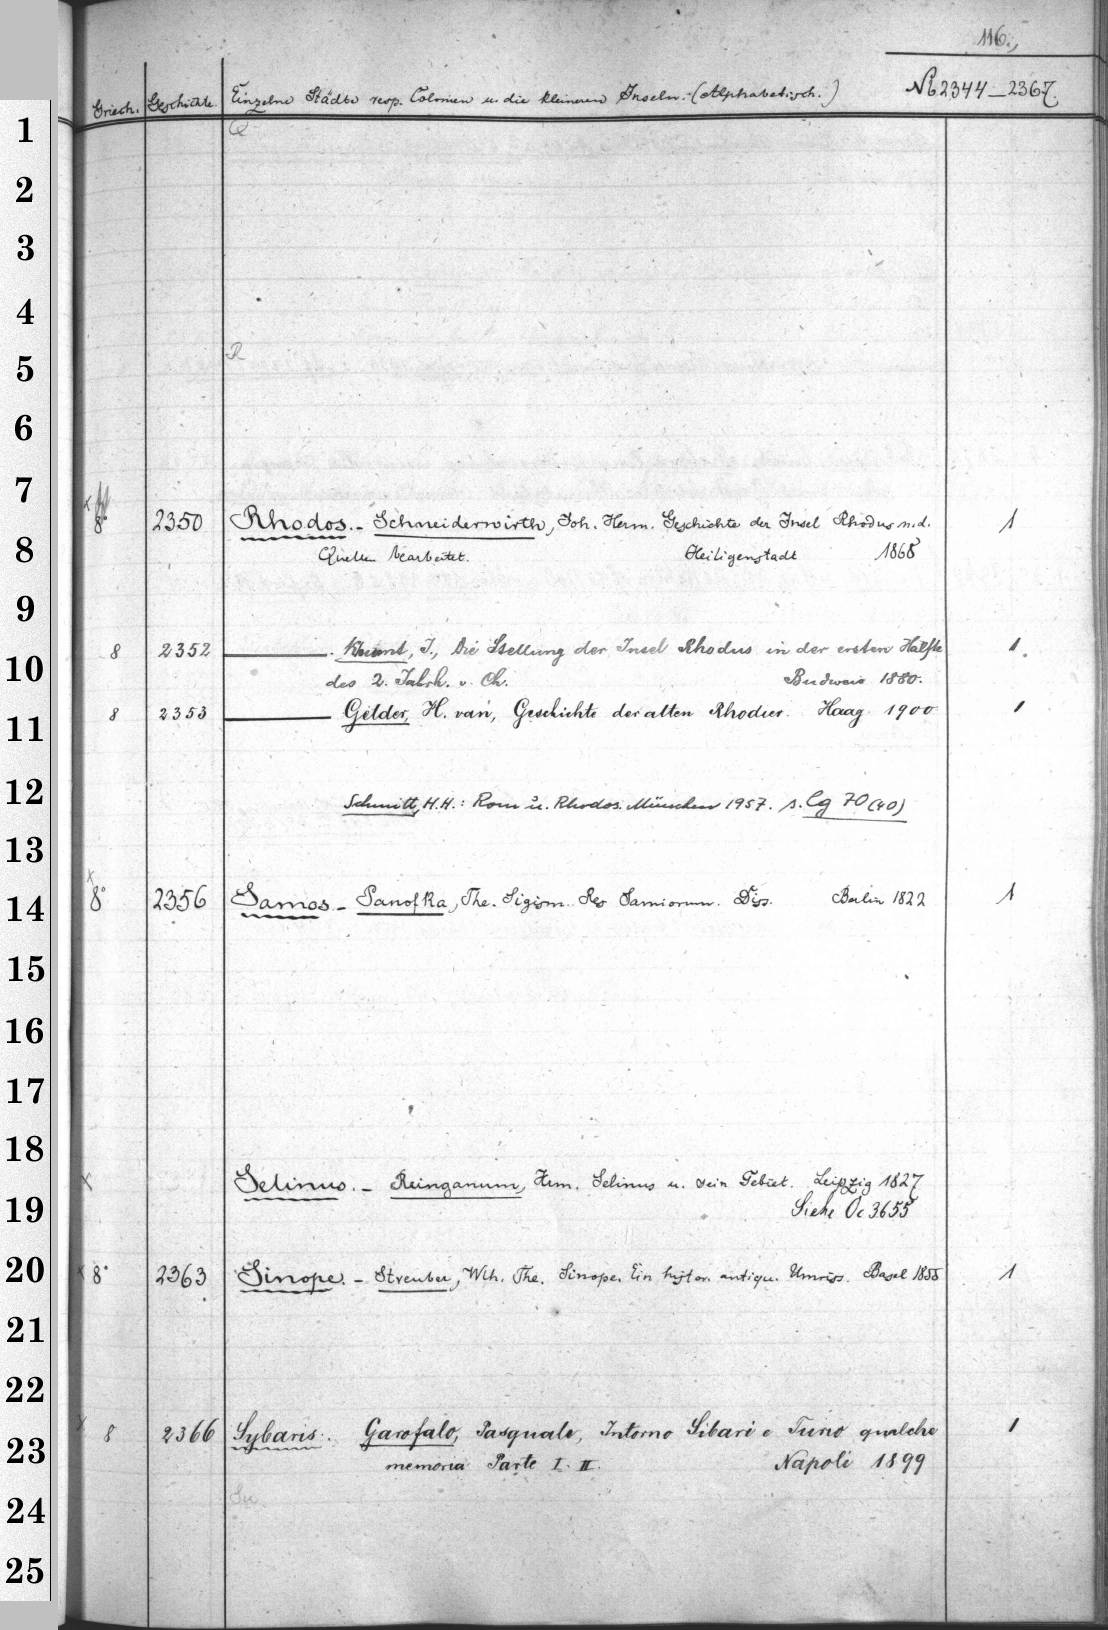 116.
Griech. Geschichte. Einzelne Städte resp. Colonien u. die kleineren Inseln. (Alphabetisch.) № 2344_2367.
Q
R
8° 2350 Rhodos. - Schneiderwirth, Joh. Herm. Geschichte der Insel Rhodus n. d. 1
Quellen bearbeitet. Heiligenstadt 1868
8 2352 ———. Kuunt, J., Die Stellung der Insel Rhodus in der ersten Hälfte 1.
des 2. Jahrh. v. Ch. Budweis 1880.
8 2353 ——— Gelder, H. van, Geschichte der alten Rhodier. Haag 1900 1
Schmitt, H.H.: Rom u. Rhodos. München 1957. s. Cg 70 (40)
x 8° 2356 Samos. - Panofka, The. Sigism. Res Samiorum. Diss. Berlin 1822 1
x Selinus. - Reinganum, Hrm. Selinus u. sein Gebiet. Leipzig 1827
Siehe Oc 3655
x 8° 2363 Sinope. - Streuber, Wlh. The. Sinope. Ein histor. antiqu. Umriss. Basel 1855 1
x 8 2366 Sybaris. Garofalo, Pasquale, Intorno Sibari e Turio qualche 1
memoria Parte I. II. Napoli 1899
1
2
3
4
5
6
7
8
9
10
11
12
13
14
15
16
17
18
19
20
21
22
23
24
25